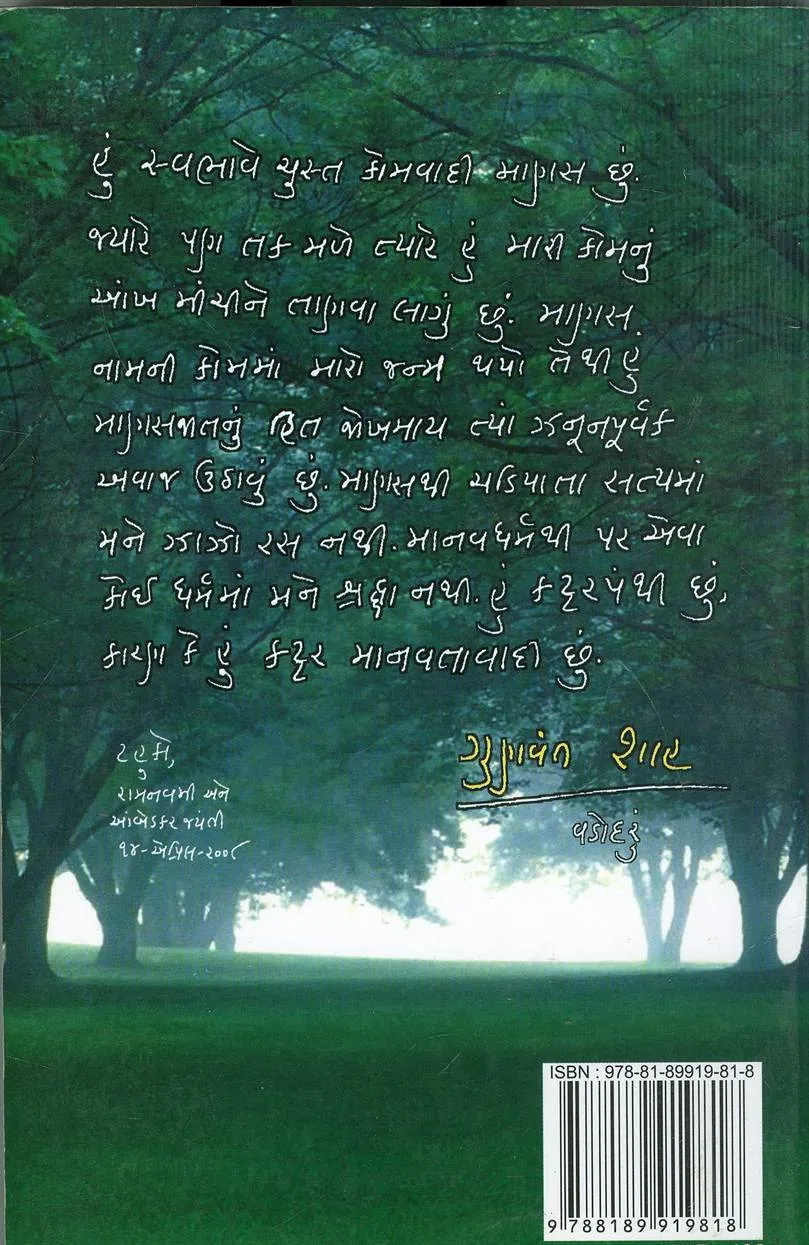 હું સ્વભાવે ચુસ્ત કોમવાદી માણસ છું.
જ્યારે પણ તક મળે ત્યારે હું મારી કોમનું
આંખ મીંચીને તાણવા લાગું છું. માણસ
નામની કોમમાં મારો જન્મ થયો તેથી હું
માણસજાતનું હિત જોખમાય ત્યાં ઝનૂનપૂર્વક
અવાજ ઉઠાવું છું. માણસથી ચડિયાતા સત્યમાં
મને ઝાઝો રસ નથી. માનવધર્મથી પર એવા
કોઈ ધર્મમાં મને શ્રદ્ધા નથી. હું કટ્ટરપંથી છું,
કારણ કે હું કટ્ટર માનવતાવાદી છું.
ટહુકો,
રામનવમી અને
આંબેડકર જયંતી
૧૪-એપ્રિલ-૨૦૦૮
ગુણવંત શાહ
વડોદરું
ISBN : 978-81-89919-81-8
9 788189 919818